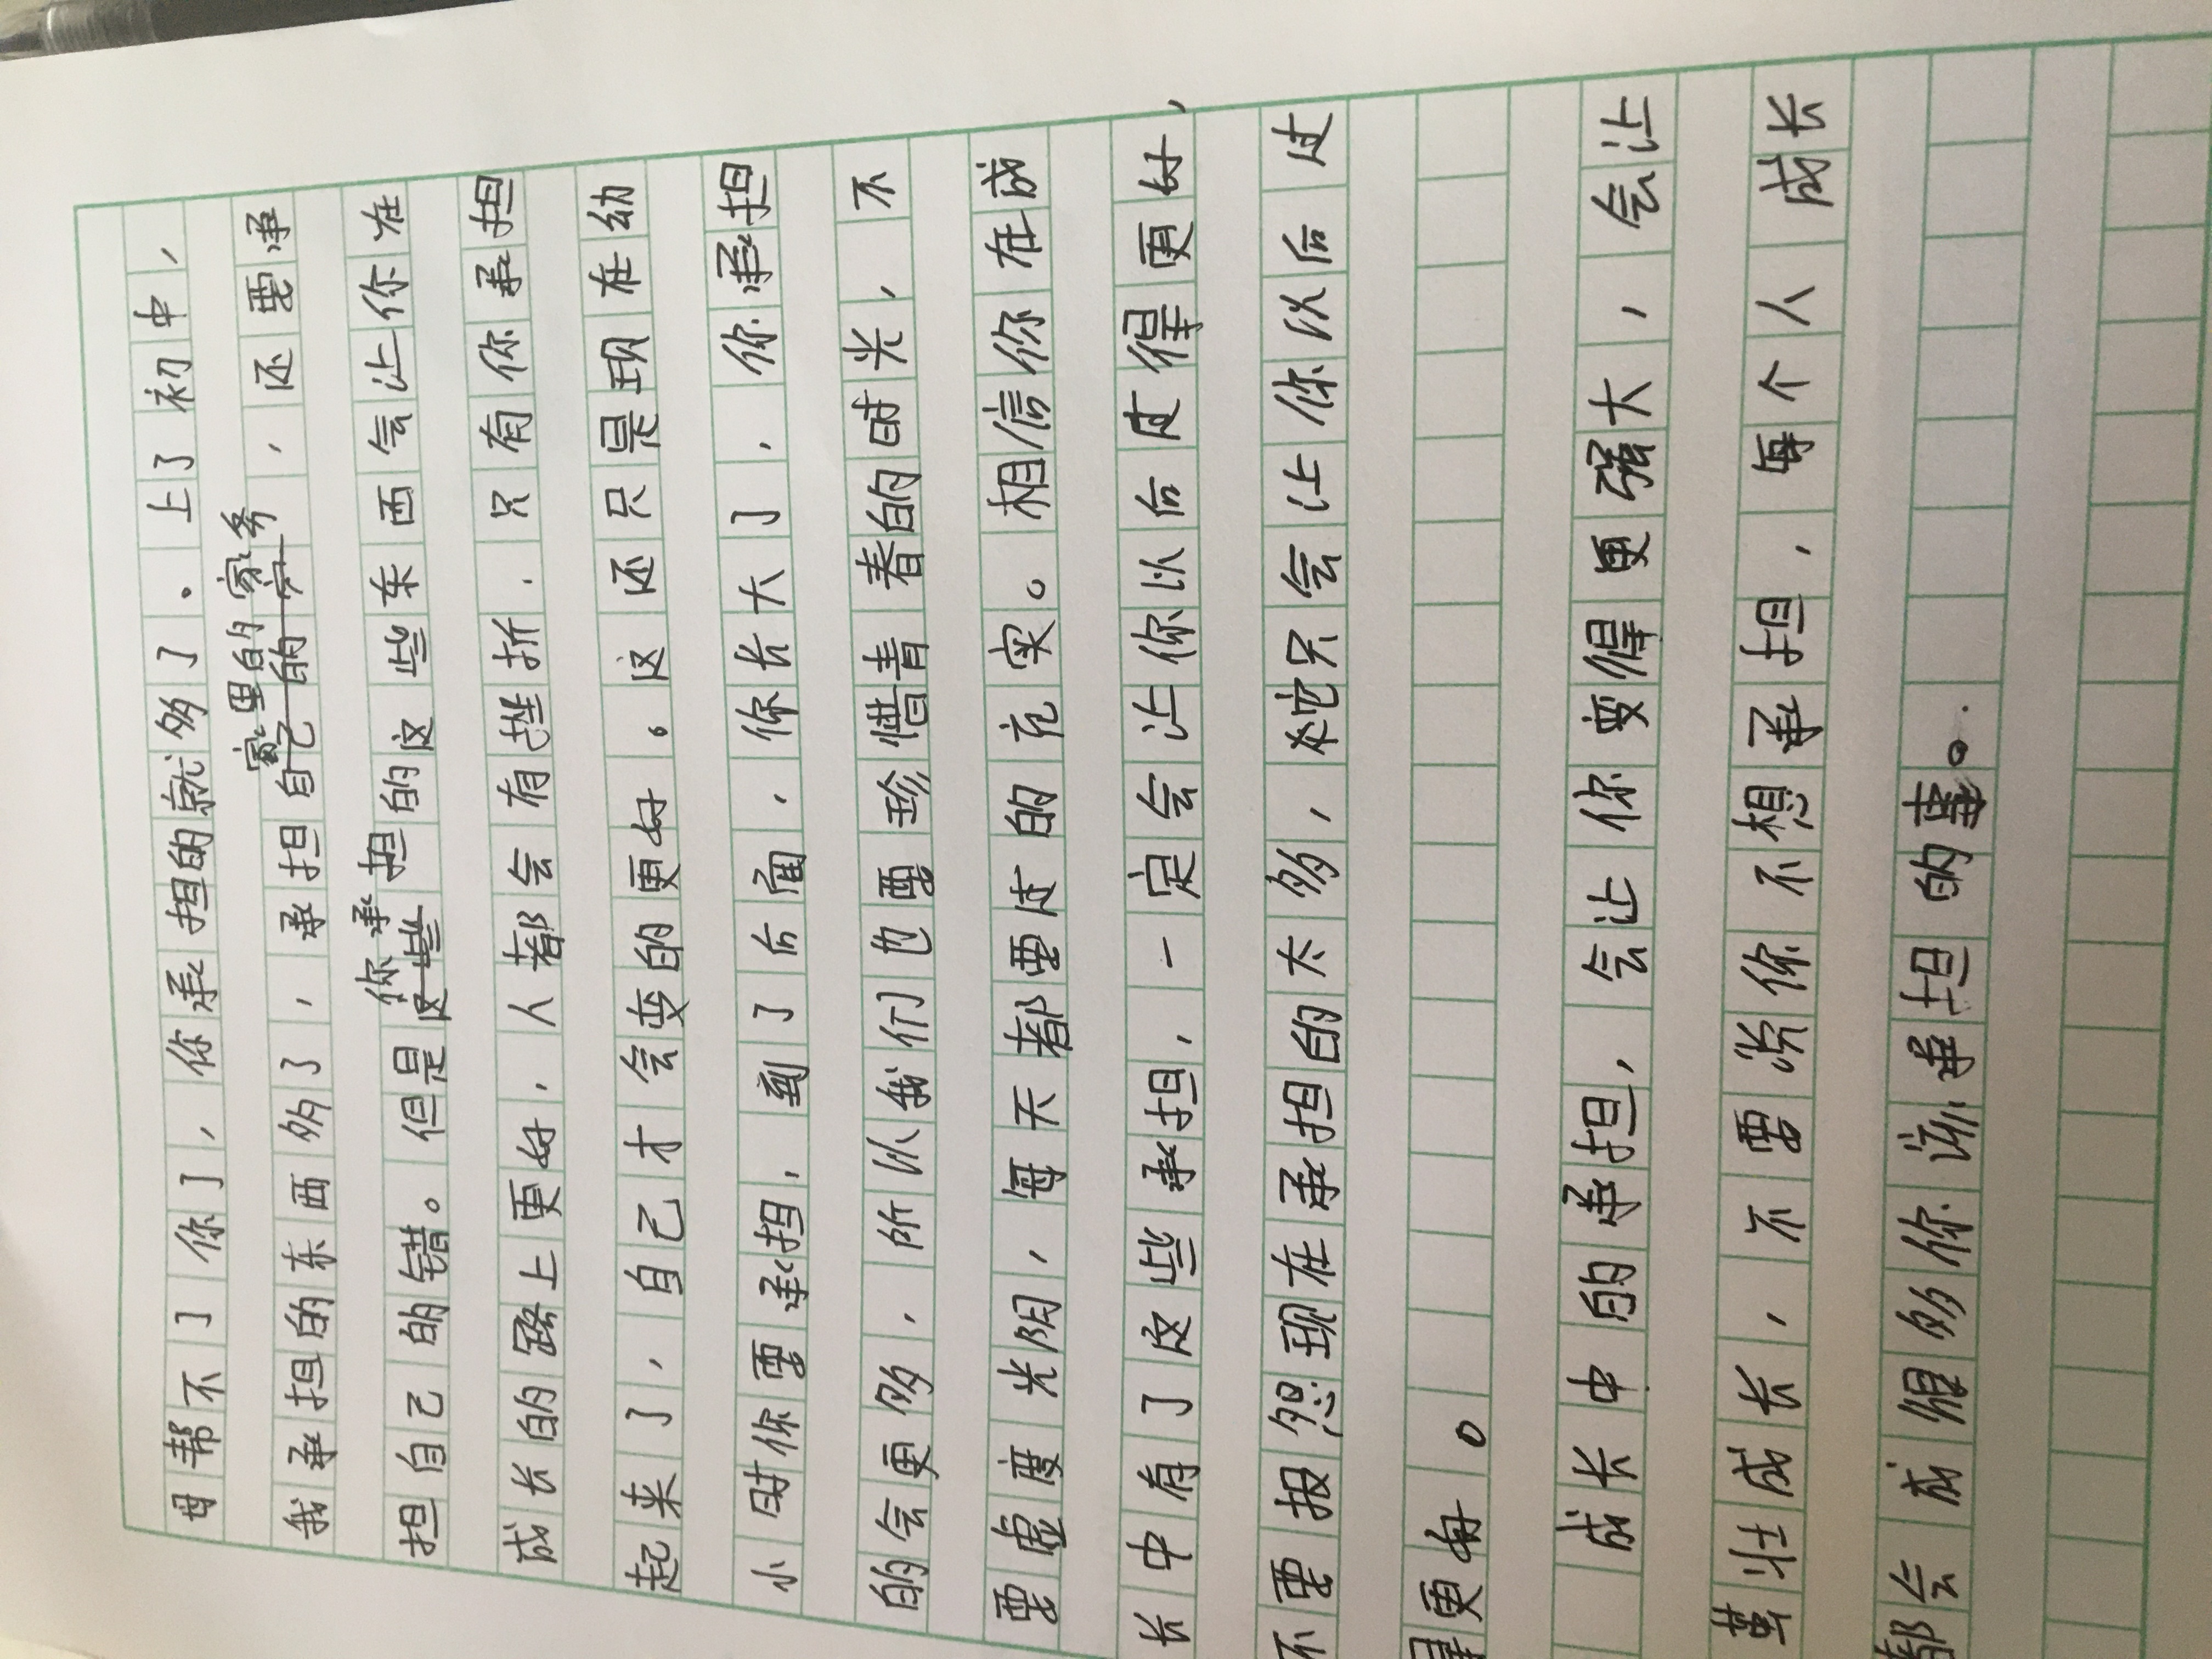 母帮不了你了，你承担的就够了。上了初中，
我承担的东西多了，承担家里的家务，还要承
担自己的错。但是你承担的这些东西会让你在
成长的路上更好，人都会有挫折，只有你承担
起来了，自己才会变的更好。这还只是现在幼
小时你要承担，到了后面，你长大了，你承担
的会更多，所以我们也要珍惜青春的时光，不
要虚度光阴，每天都要过的充实。相信你在成
长中有了这些承担，一定会让你以后过得更好，
不要报怨现在承担的太多，它只会让你以后过
得更好。
成长中的承担，会让你变得更强大，会让
茁壮成长，不要说你不想承担，每个人成长
都会成很多你该承担的事。